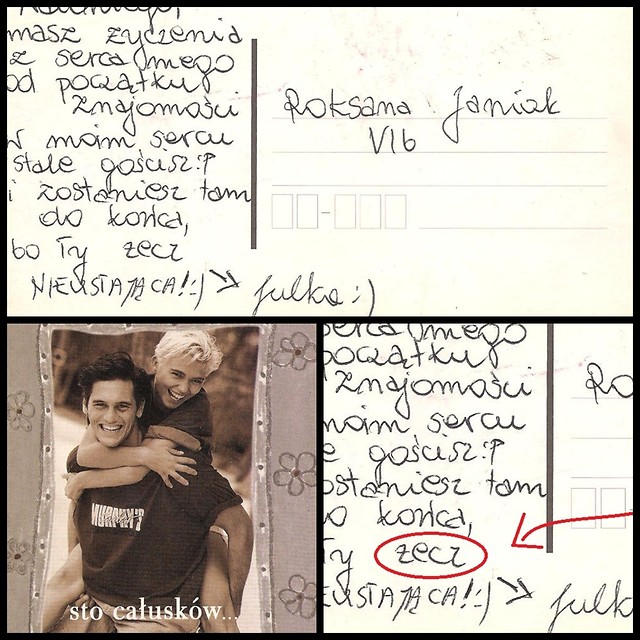 masz życzenia
z serca mego
od początku
znajomości
w moim sercu
stale gościsz:P
i zostaniesz tam
do końca,
bo Ty zecz
NIEUSTAJĄCA!:)
Julka :)
Roksana Janiak
VIb
MURPHY'S
sto całusków...
serca mego
początku
znajomości
moim sercu
e gościsz:P
ostaniesz tam
do końca,
Ty zecz
EUSTAJĄCA!:)
Julk
Ro